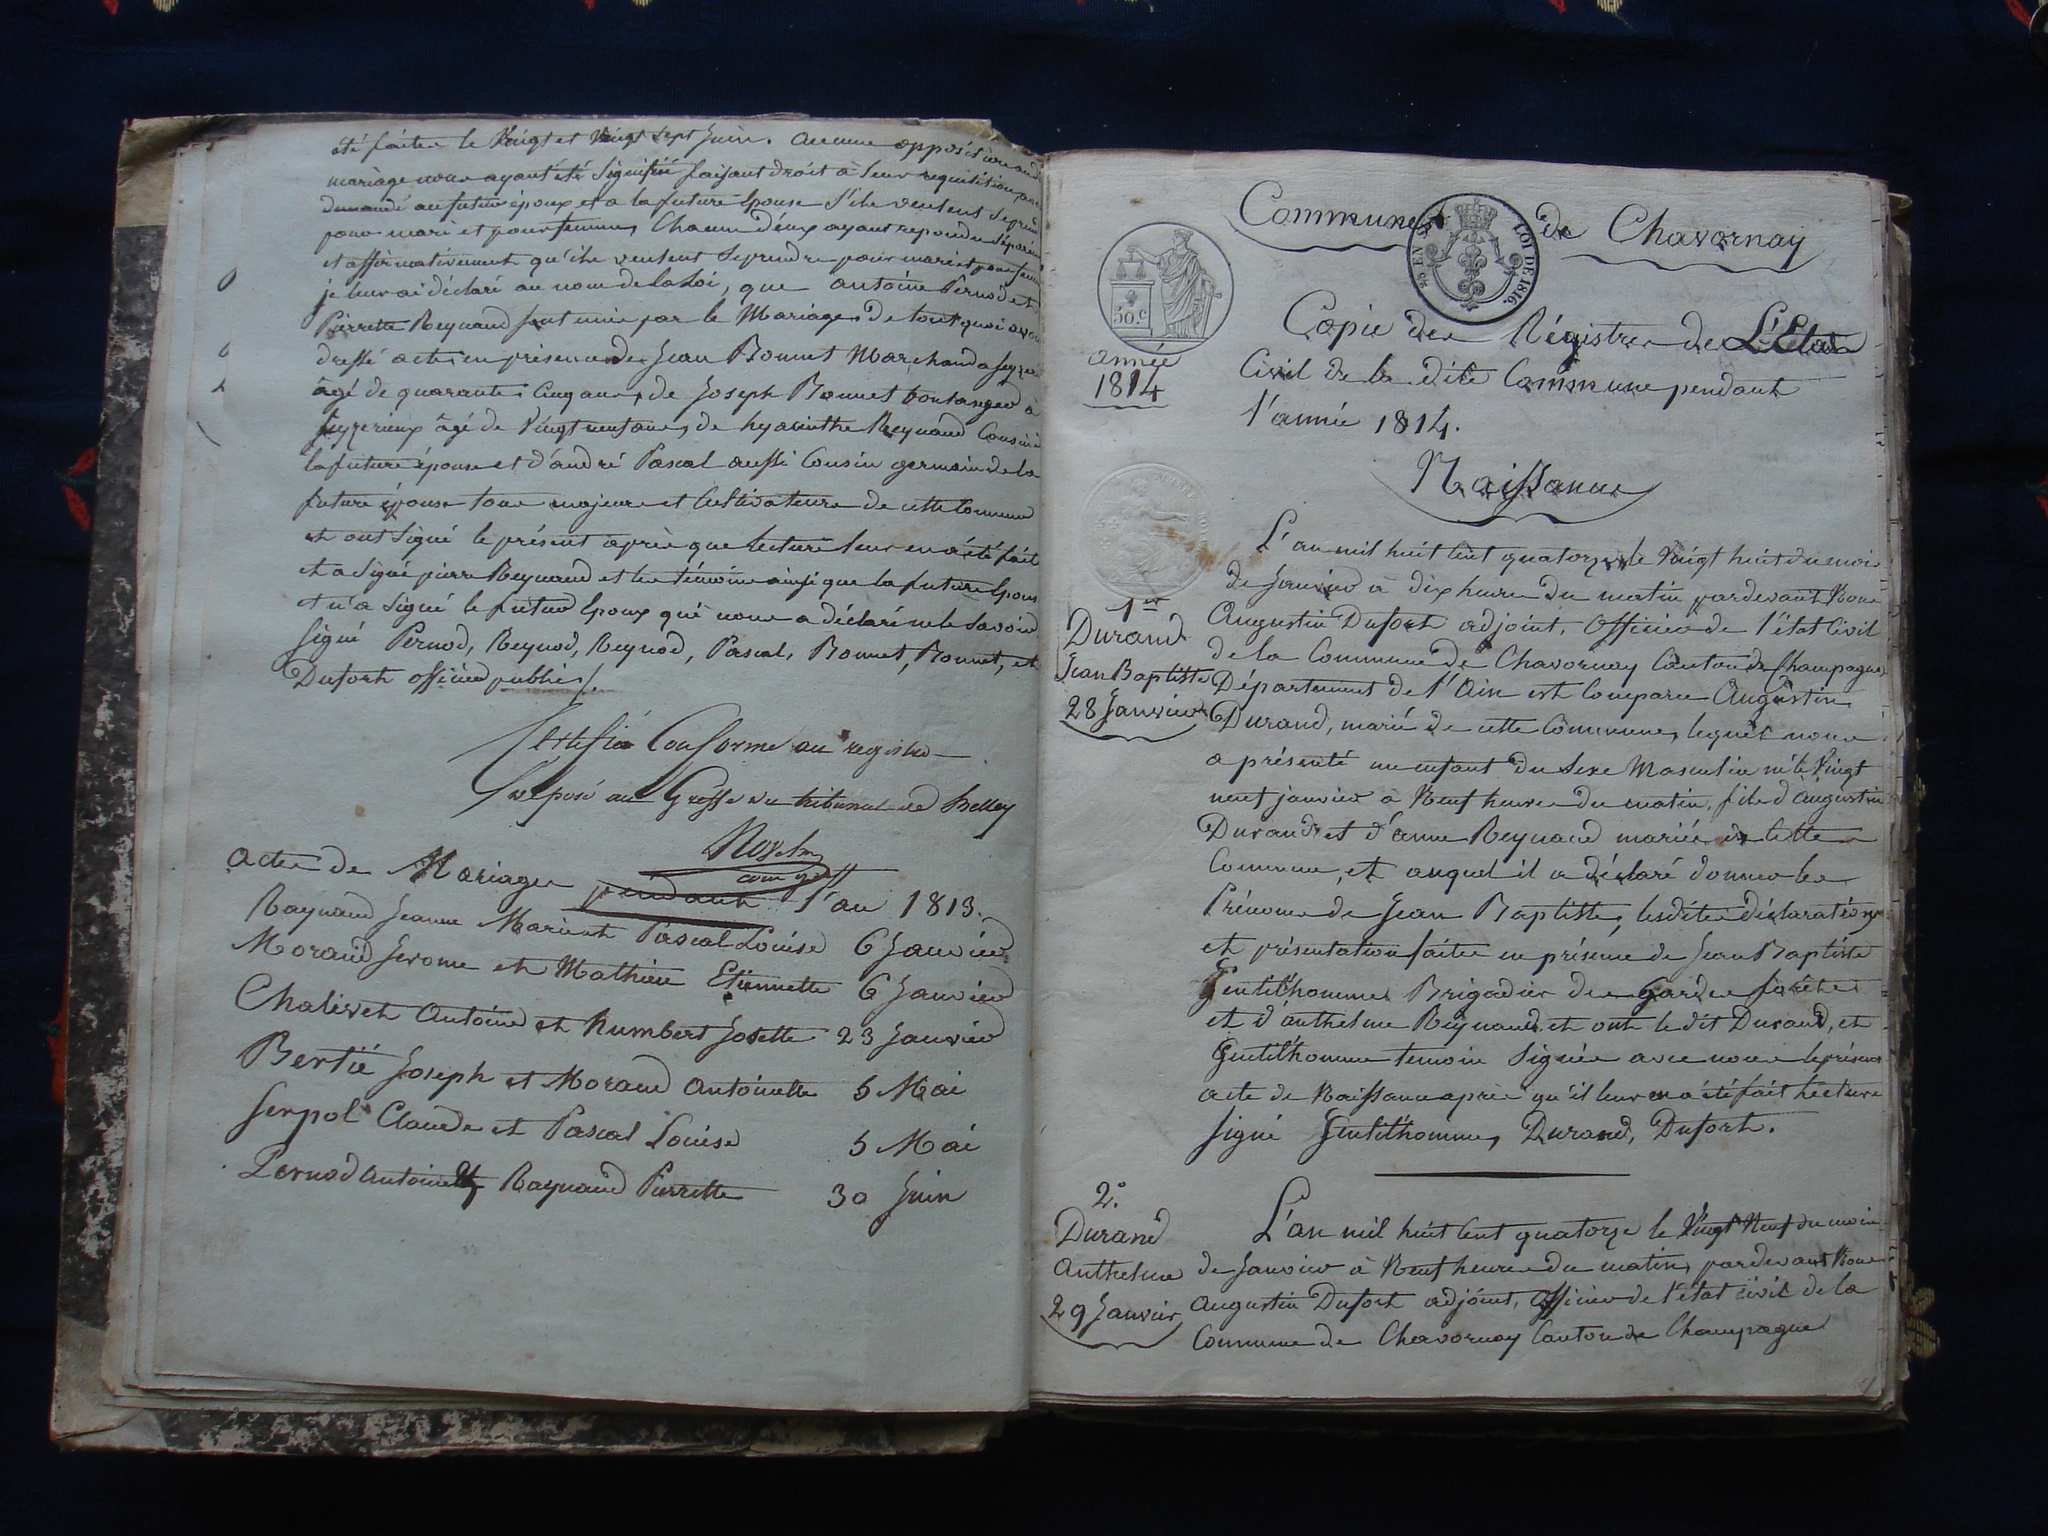 été faites le Vingt et Vingt Sept Juin. aucune opposition aud
mariage nous ayant été Signifiée faisant droit à leur requisition
demandé au futur époux et a la future Epouse S'ils veulent Se
pour mari et pour femme, Chacun d'eux ayant repondu
et affirmativement qu'ils veulent Se prendre pour mari et pour
je leur ai déclaré au nom de la Loi, que antoine Pernod et
Pierrette Reynaud Sont unis par le Mariage. De tout quoi
dressé acte en présence de Jean Bonnet Marchand a
âgé de quarante Cinq ans, de Joseph Bonnet boulanger à
Seyzerieux âgé de Vingt neuf ans, de hyacinthe Reynaud Cousin
la future épouse et d'andré Pascal aussi Cousin germain de la
future épouse tous majeurs et Cultivateurs de cette Commune
et ont Signé le présent après que Lecture leur en a été fait
et a Signé pierre Reynaud et les témoins ainsi que la future Epouse
et n'a Signé le futur Epoux qui nous a déclaré ne le Savoir
Signé Pernod, Reynod, Reynod, Pascal, Bonnet, Bonnet, et
Dufort officier public /.
Certifié Conforme au registre
Déposé au Greffe du tribunal de Belley
actes de Mariages pendant l'an 1813.
Raynaud Jeanne Marie et Pascal Louise 6 Janvier
Morand Jerome et Mathieu Etiennette 6 Janvier
Chalivet Antoine et humbert Josette 23 Janvier
Bertié Joseph et Morand Antoinette 5 Mai
Serpol Claude et Pascal Louise 5 Mai
Pernod Antoine et Raynaud Pierrette 30 Juin
Commune de Chavornay
LOI DE 1816.
50.c
année
1814
Copie des Régistres de L'Etat
Civil de la dite Commune pendant
l'année 1814.
Naissances
L'an mil huit Cent quatorze le Vingt huit du mois
de Janvier à dix heures du matin pardevant Nous
1er
Durand
Jean Baptiste
28 Janvier
Augustin Dufort adjoint, Officier de l'état Civil
de la Commune de Chavornay Canton de Champagne
Département de l'Ain est Comparu Augustin
Durand, marié de cette Commune, lequel nous
a présenté un enfant du Sexe Masculin né le Vingt
neuf janvier à Neuf heures du matin, fils d'augustin
Durand et d'anne Reynaud mariés de Cette
Commune, et auquel il a déclaré donner les
Prénoms de Jean Baptiste, lesdites déclarations
et présentation faites en présence de Jean Baptiste
Gentilhomme Brigadier des Gardes forêts
et d'anthelme Reynaud et ont le dit Durand, et
Gentilhomme temoin Signés avec nous le présent
acte de Naissance après qu'il leur en a été fait Lecture
Signé Gentilhomme, Durand, Dufort.
2.°
Durand
Anthelme
29 Janvier
L'an mil huit Cent quatorze le Vingt Neuf du mois
de Janvier à Neuf heures du matin, pardevant Nous
Augustin Dufort adjoint, Officier de l'état civil de la
Commune de Chavornay Canton de Champagne